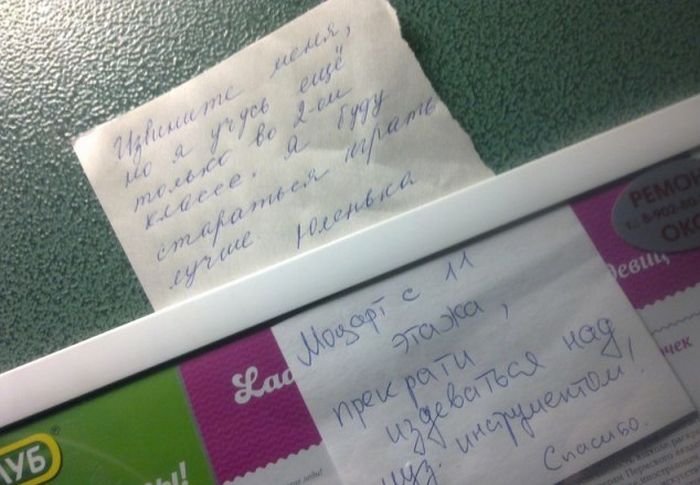 Извините меня,
но я учусь ещё
только во 2-ом
классе. Я буду
стараться играть
лучше Юленька
Моцарт с 11
этажа,
прекрати
издеваться над
муз. инструментом!
Спасибо.
РЕМОН
8-902-
ОКО
девиц
чек
Lad
УБ
Ы!